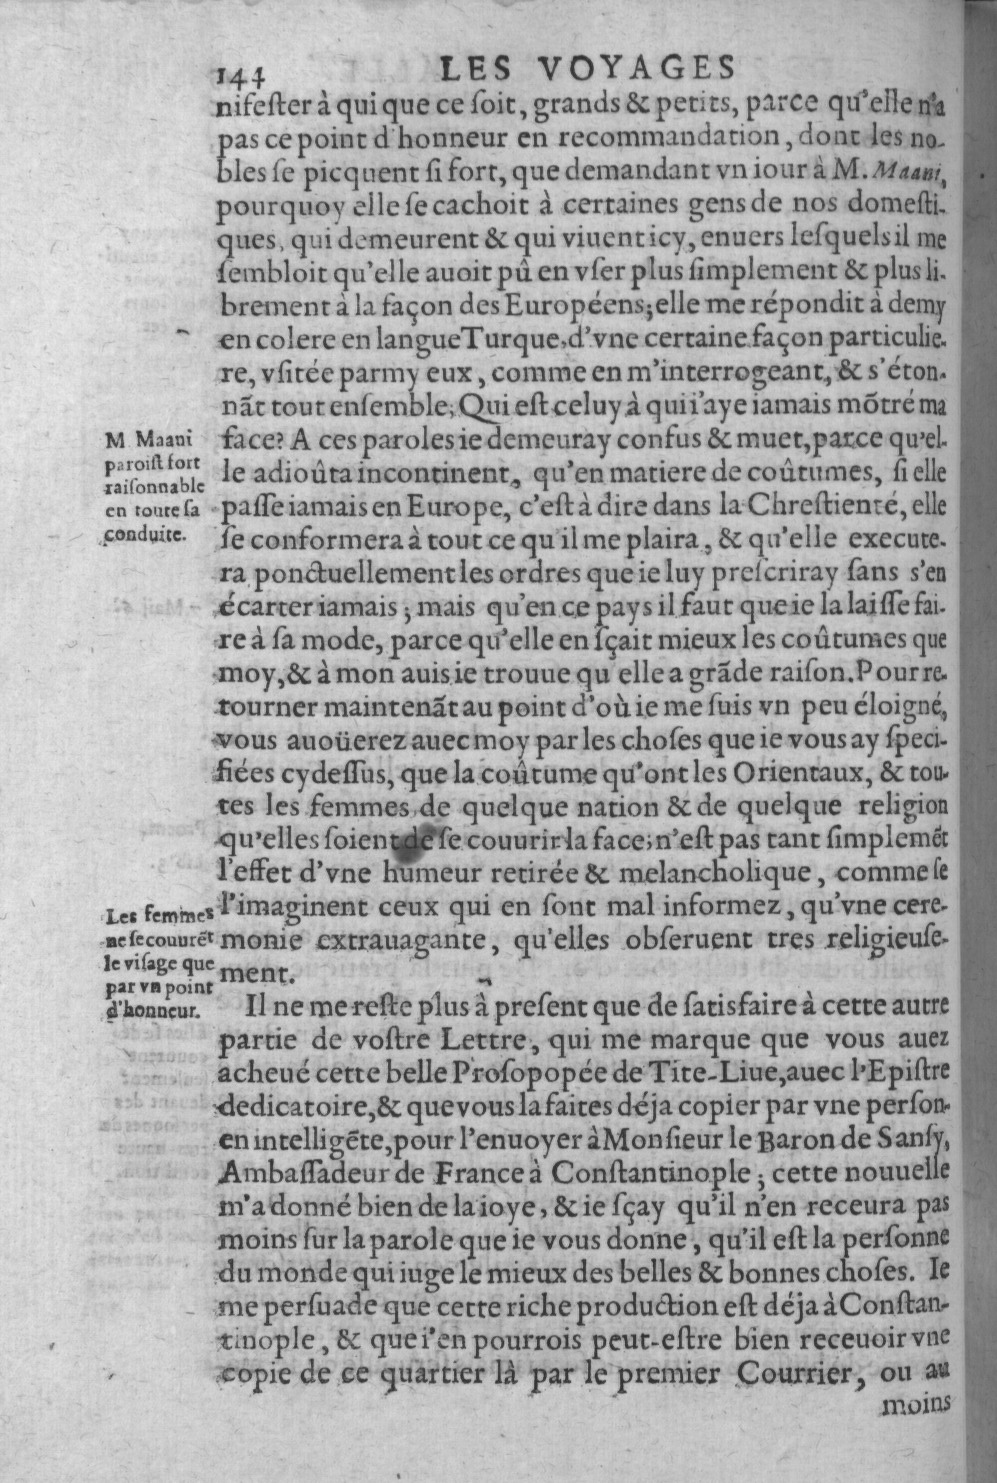 144 LES VOYAGES
nifester à qui que ce ſoit, grands & petits, parce qu'elle n'a
pas ce point d'honneur en recommandation, dont les no-
bles ſe picquent ſi fort, que demandant vn iour à M. Maani,
pourquoy elle ſe cachoit à certaines gens de nos domeſti-
ques, qui demeurent & qui viuent icy, enuers leſquels il me
ſembloit qu'elle auoit pû en vſer plus ſimplement & plus li-
brement à la façon des Européens; elle me répondit à demy
en colere en langue Turque, d'vne certaine façon particulie-
re, vſitée parmy eux, comme en m'interrogeant, & s'éton-
nãt tout enſemble; Qui eſt celuy à qui i'aye iamais mõtré ma
face? A ces paroles ie demeuray confus & muet, parce qu'el-
le adioûta incontinent, qu'en matiere de coûtumes, ſi elle
paſſe iamais en Europe, c'eſt à dire dans la Chreſtienté, elle
ſe conformera à tout ce qu'il me plaira, & qu'elle execute-
ra ponctuellement les ordres que ie luy preſcriray ſans s'en
écarter iamais; mais qu'en ce pays il faut que ie la laiſſe fai-
re à ſa mode, parce qu'elle en ſçait mieux les coûtumes que
moy, & à mon auis ie trouue qu'elle a grãde raiſon. Pour re-
tourner maintenãt au point d'où ie me ſuis vn peu éloigné,
vous auoüerez auec moy par les choſes que ie vous ay ſpeci-
fiées cydeſſus, que la coûtume qu'ont les Orientaux, & tou-
tes les femmes de quelque nation & de quelque religion
qu'elles ſoient de ſe couurir la face, n'eſt pas tant ſimplemẽt
l'effet d'vne humeur retirée & melancholique, comme ſe
l'imaginent ceux qui en ſont mal informez, qu'vne cere-
monie extrauagante, qu'elles obſeruent tres religieuſe-
ment.
Il ne me reſte plus à preſent que de ſatisfaire à cette autre
partie de voſtre Lettre, qui me marque que vous auez
acheué cette belle Proſopopée de Tite-Liue, auec l'Epiſtre
dedicatoire, & que vous la faites déja copier par vne perſon-
en intelligẽte, pour l'enuoyer à Monſieur le Baron de Sanſy,
Ambaſſadeur de France à Conſtantinople; cette nouuelle
m'a donné bien de la ioye, & ie ſçay qu'il n'en receura pas
moins ſur la parole que ie vous donne, qu'il eſt la perſonne
du monde qui iuge le mieux des belles & bonnes choſes. Ie
me perſuade que cette riche production eſt déja à Conſtan-
tinople, & que i'en pourrois peut-eſtre bien receuoir vne
copie de ce quartier là par le premier Courrier, ou au
moins
M Maani
paroiſt fort
raiſonnable
en toute ſa
conduite.
Les femmes
ne ſe couurẽt
le viſage que
par vn point
d'honneur.